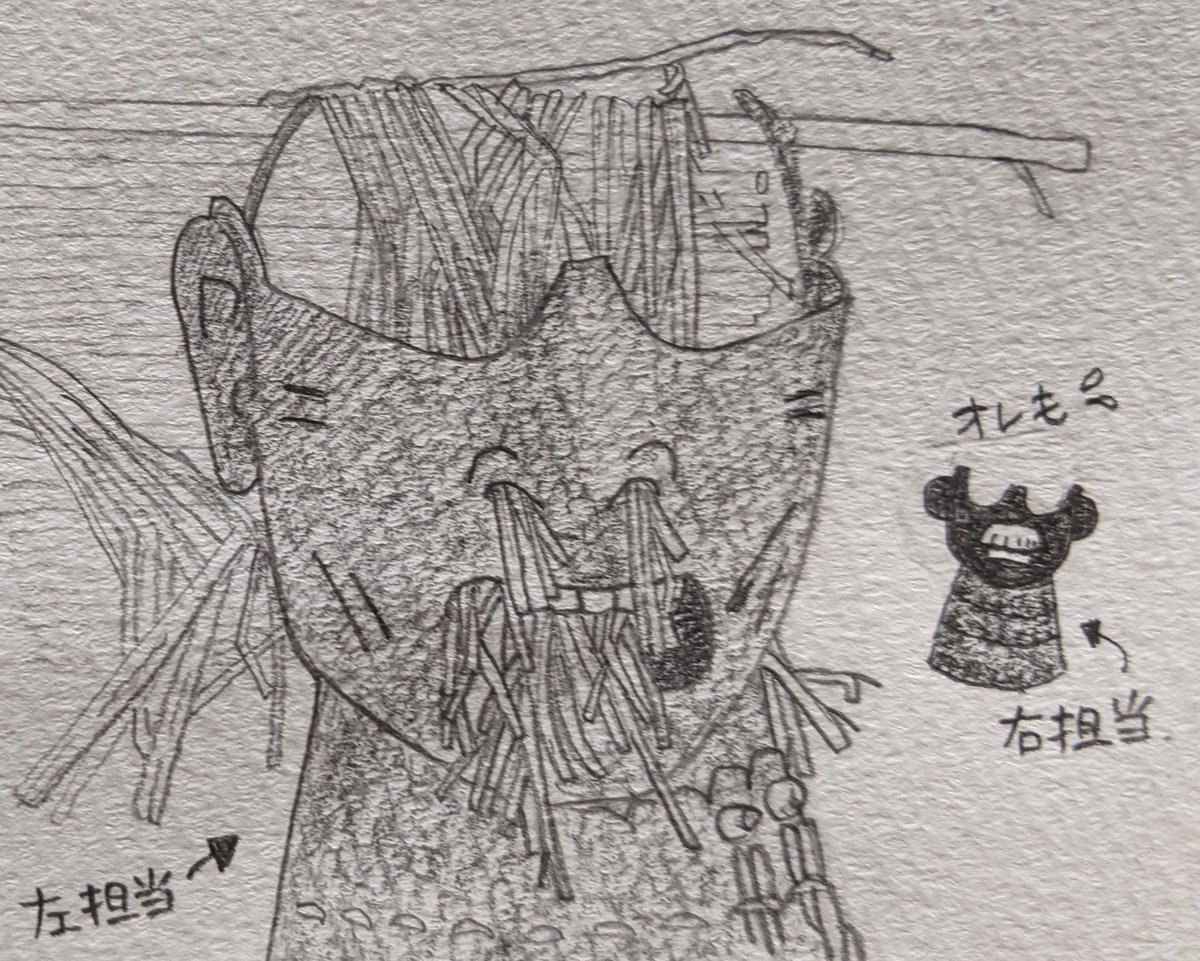 オレも
右担当
左担当